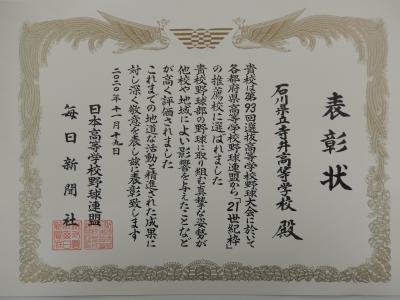 表彰状
石川県立寺井高等学校 殿
貴校は第93回選抜高等学校野球大会に於いて
各都府県高等学校野球連盟から「21世紀枠」
の推薦校に選ばれました
貴校野球部の野球に取り組む真摯な姿勢が
他校や地域によい影響を与えたことなど
が高く評価されました
これまでの地道な活動と精進された成果に
対し深く敬意を表し茲に表彰致します
二〇二〇年十一月十九日
日本高等学校野球連盟
毎日新聞社